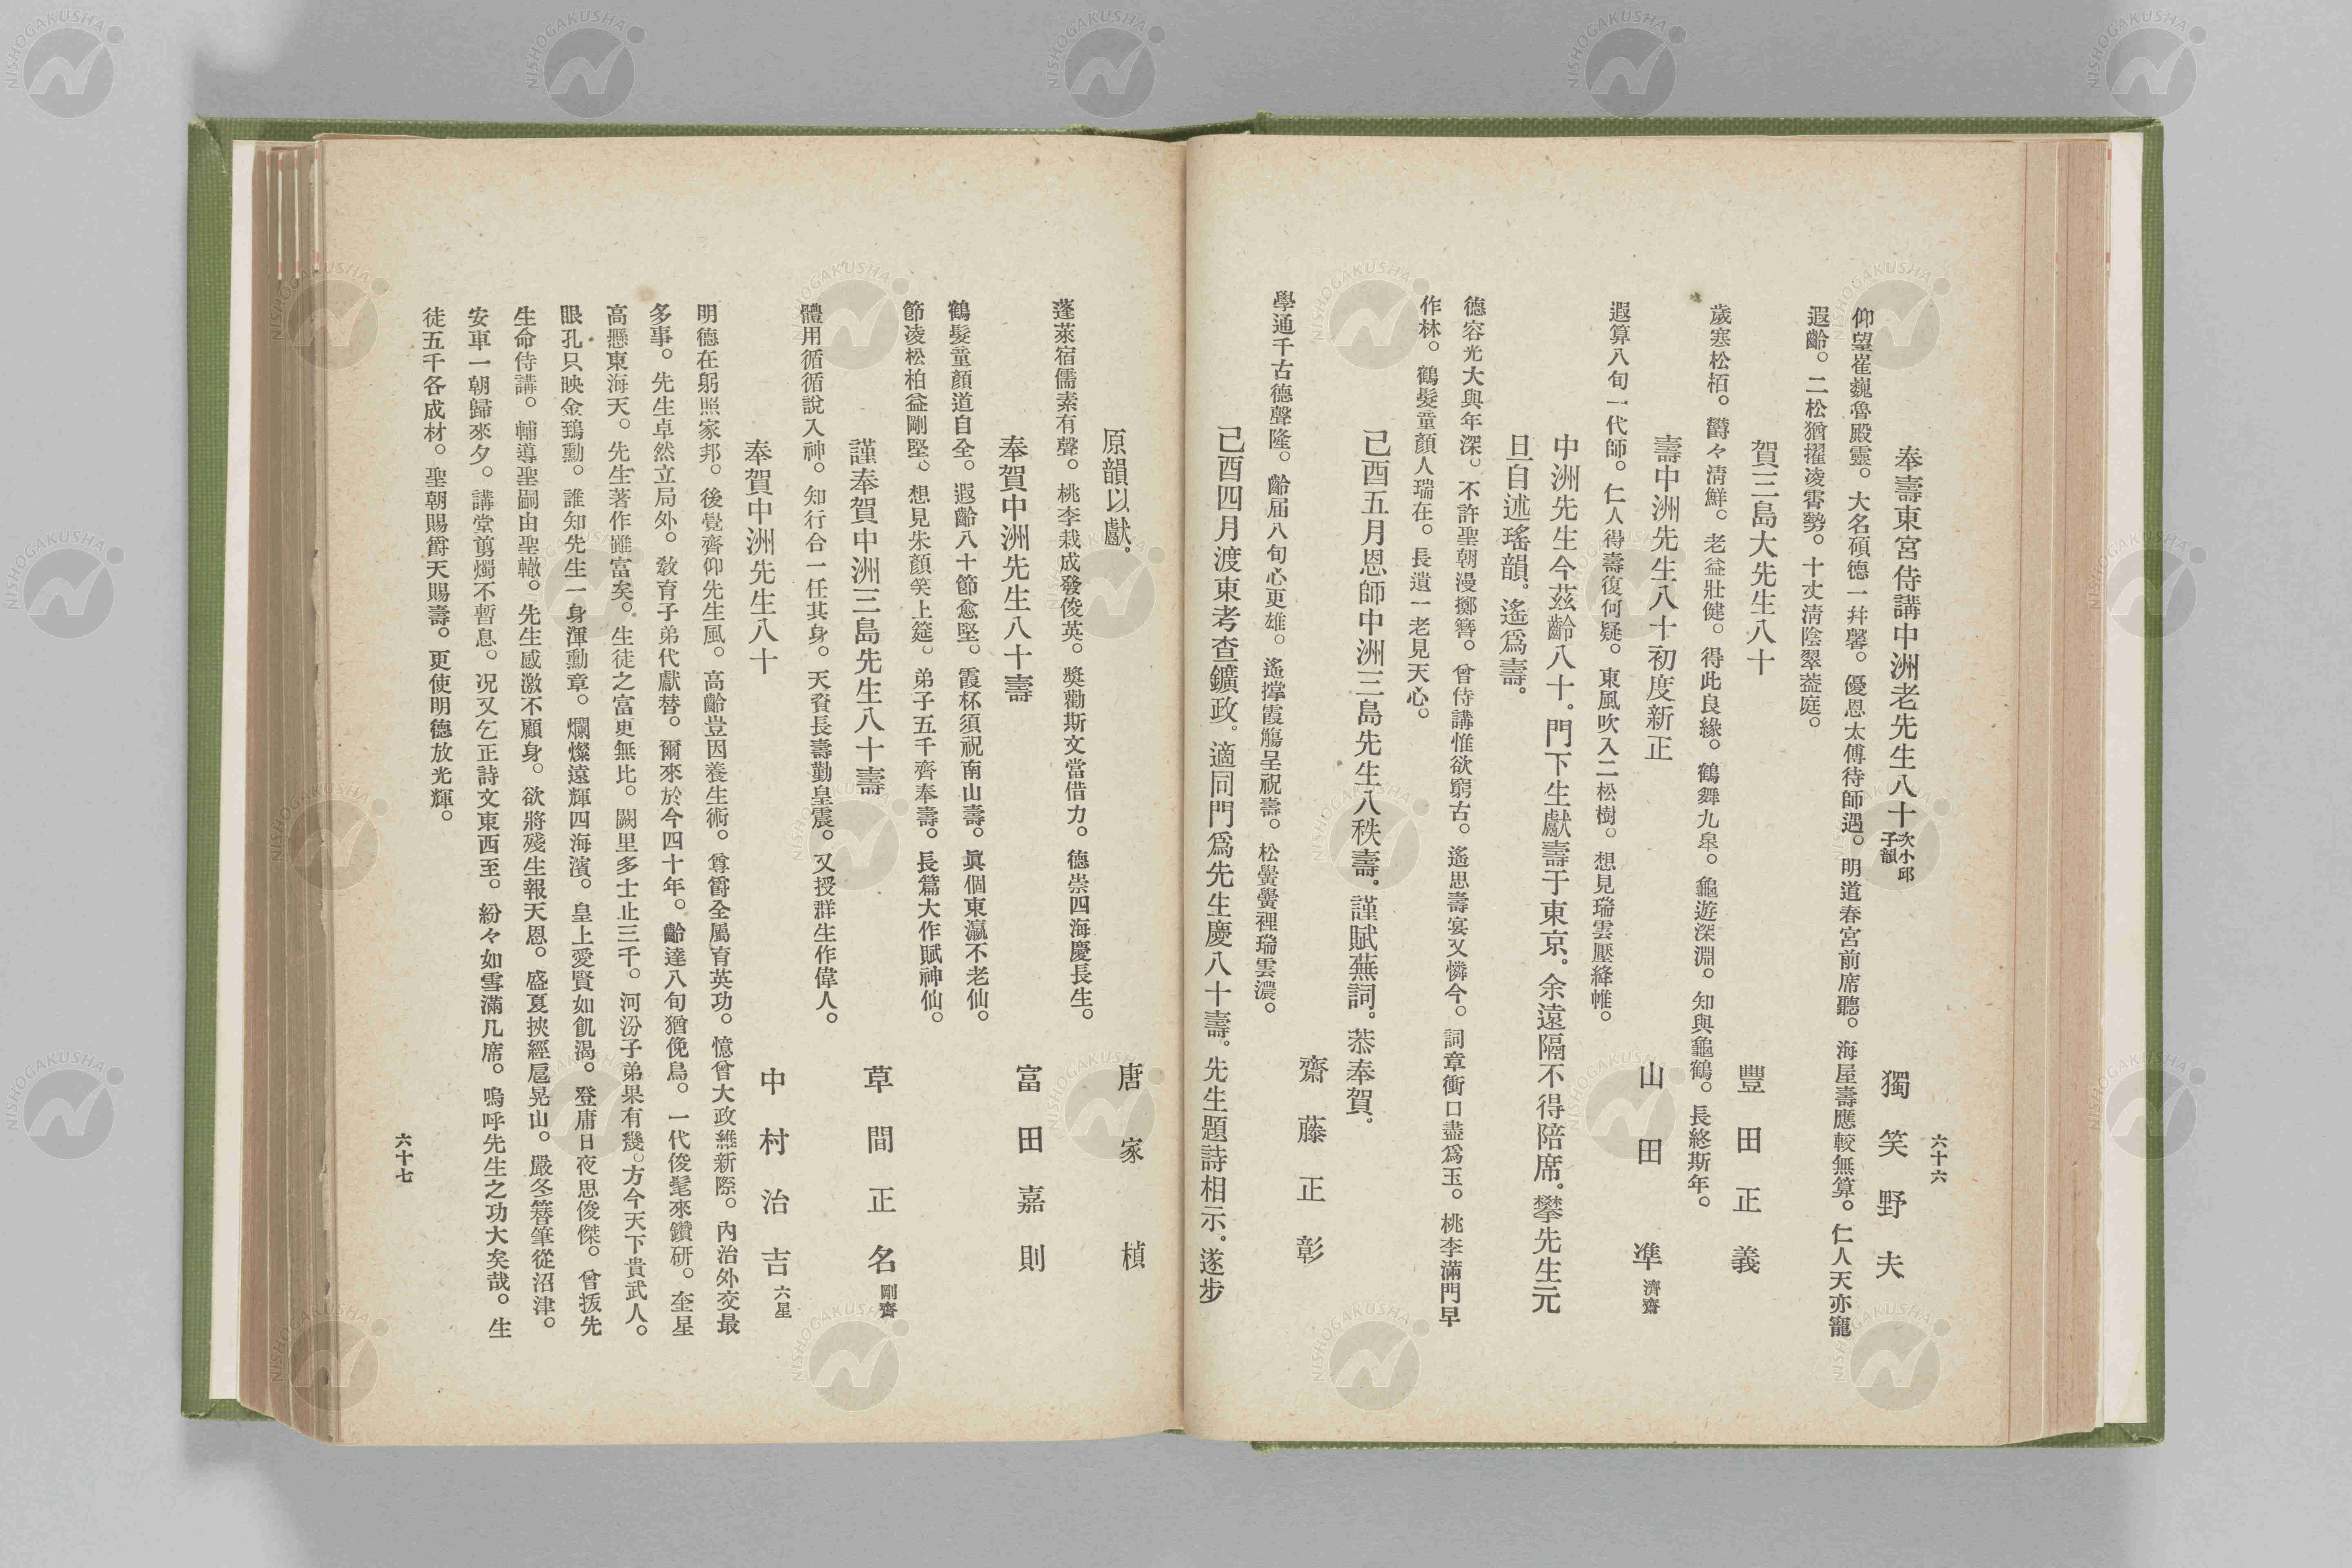 六十六
奉壽東宮侍講中洲老先生八十次小邱子韻
獨笑野夫
仰望崔巍魯殿靈。大名碩德一幷馨。優恩太傅待師遇。明道春宮前席聽。海屋壽應較無算。仁人天亦寵
遐齡。二松猶擢凌霄勢。十丈淸陰翠葢庭。
賀三島大先生八十
豐田正義
歲寒松栢。欝々淸鮮。老益壯健。得此良緣。鶴舞九皐。龜遊深淵。知與龜鶴。長終斯年。
壽中洲先生八十初度新正
山田準濟齋
遐算八旬一代師。仁人得壽復何疑。東風吹入二松樹。想見瑞雲壓絳帷。
中洲先生今茲齡八十。門下生獻壽于東京。余遠隔不得陪席。攀先生元
旦自述瑤韻。遙爲壽。
德容光大與年深。不許聖朝漫擲簪。曾侍講惟欲窮古。遙思壽宴又憐今。詞章衝口盡爲玉。桃李滿門早
作林。鶴髮童顏人瑞在。長遺一老見天心。
己酉五月恩師中洲三島先生八秩壽。謹賦蕪詞。恭奉賀。
齋藤正彰
學通千古德聲隆。齡届八旬心更雄。遙擎霞觴呈祝壽。松黌黌裡瑞雲濃。
己酉四月渡東考査鑛政。適同門爲先生慶八十壽。先生題詩相示。遂步
原韻以獻。
唐家楨
蓬萊宿儒素有聲。桃李栽成發俊英。奬勸斯文當借力。德崇四海慶長生。
奉賀中洲先生八十壽
富田嘉則
鶴髮童顏道自全。遐齡八十節愈堅。霞杯須祝南山壽。眞個東瀛不老仙。
節凌松柏益剛堅。想見朱顏笑上筵。弟子五千齊奉壽。長篇大作賦神仙。
謹奉賀中洲三島先生八十壽
草間正名剛齋
體用循循說入神。知行合一任其身。天資長壽勤皇震。又授群生作偉人。
奉賀中洲先生八十
中村治吉六星
明德在躬照家邦。後覺齊仰先生風。高齡豈因養生術。尊爵全屬育英功。憶曾大政維新際。內治外交最
多事。先生卓然立局外。敎育子弟代獻替。爾來於今四十年。齡達八旬猶俛焉。一代俊髦來鑽硏。奎星
高懸東海天。先生著作雖富矣。生徒之富更無比。闕里多士止三千。河汾子弟果有幾。方今天下貴武人。
眼孔只映金鵄勳。誰知先生一身渾勳章。爛燦遠輝四海濱。皇上愛賢如飢渴。登庸日夜思俊傑。曾拔先
生命侍講。輔導聖嗣由聖轍。先生感激不顧身。欲將殘生報天恩。盛夏挾經扈晃山。嚴冬簪筆從沼津。
安車一朝歸來夕。講堂剪燭不暫息。况又乞正詩文東西至。紛々如雪滿几席。嗚呼先生之功大矣哉。生
徒五千各成材。聖朝賜爵天賜壽。更使明德放光輝。
六十七